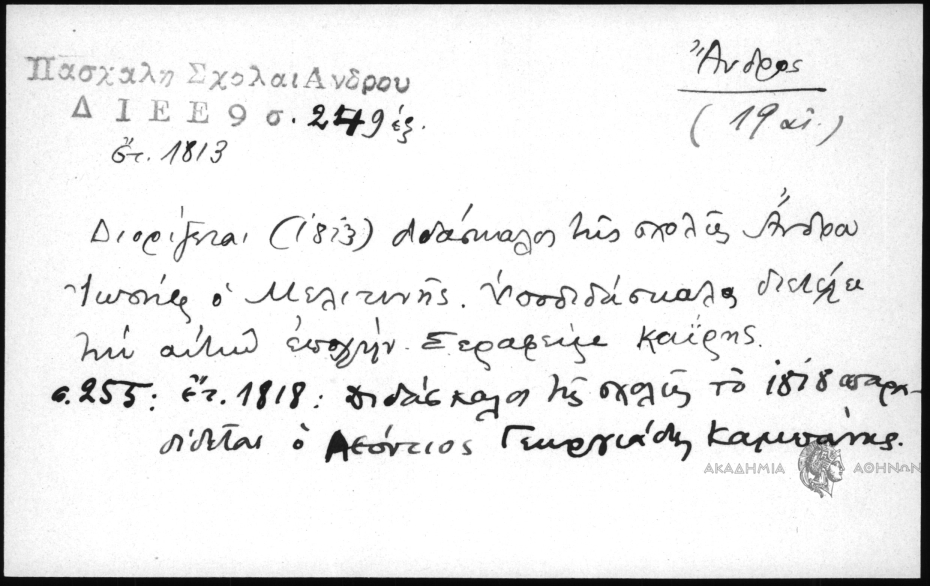 Πασχαλη Σχολαι Ανδρου
Δ Ι Ε Ε 9 σ. 249 ἑξ.
ἔτ. 1813
Ἄνδρος
(19 αἰ.)
Διορίζεται (1813) διδάσκαλος τῆς σχολῆς Ἄνδρου
Ἰωσὴφ ὁ Μελιτινῆς. Ὑποδιδάσκαλος διετέλει
τὴν αὐτὴν ἐποχὴν Σεραφεὶμ Καΐρης.
σ. 255: ἔτ. 1818: διδάσκαλος τῆς σχολῆς τὸ 1818 παρα-
δίδεται ὁ Λεόντιος Γεωργιάδης Καμπάνης.
ΑΚΑΔΗΜΙΑ ΑΘΗΝΩΝ